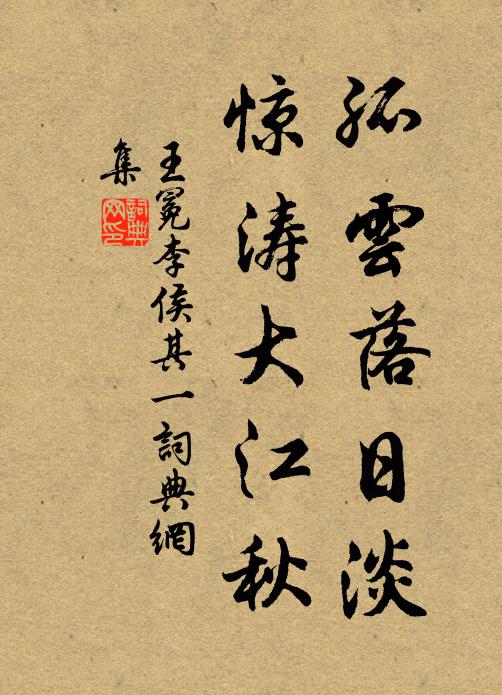 孤雲落日淡
惊涛大江秋
王冕李侯其一詞典網
集
詞典
网印